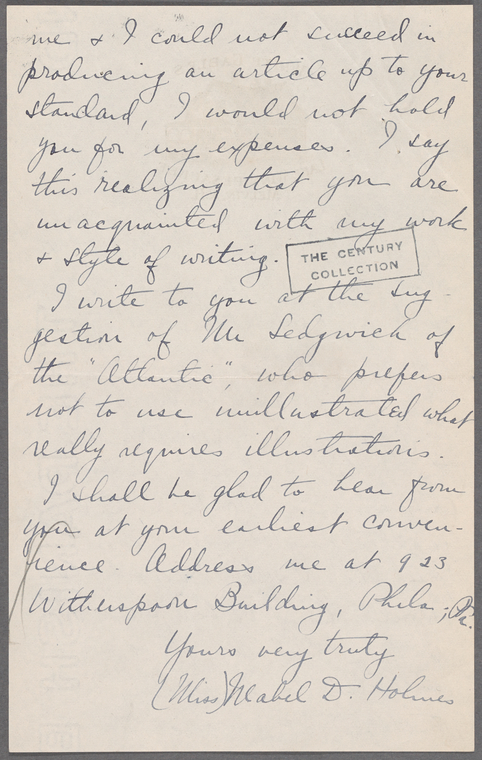 me & I could not succeed in
producing an article up to your
standard, I would not hold
you for my expenses. I say
this realizing that you are
unacquainted with my work
& style of writing.
THE CENTURY
COLLECTION
I write to you at the sug-
gestion of Mr Sedgwick of
the "Atlantic", who prefers
not to use unillustrated what
really requires illustrations.
I shall be glad to hear from
you at your earliest conven-
ience. Address me at 923
Witherspoon Building, Phila; Pa.
Yours very truly
(Miss) Mabel D. Holmes